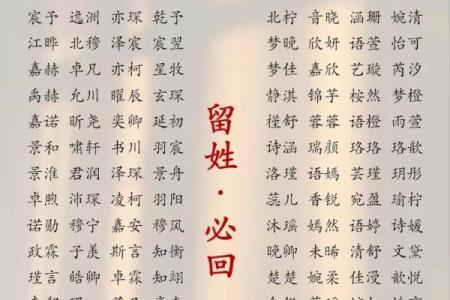 宸予 逸洲 亦琛 乾予
江晔 北穆 泽宸 宸翌
嘉赫 卓凡 亦柯 星牧
禹赫 允川 曜辰 玄琛
嘉诺 昕尧 奕卿 延初
景和 啸轩 书川 羽宸
景淮 君润 泽琛 景舟
卓煦 沛琛 凌柯 羽阳
诺勋 穆宁 嘉安 穆风
政霖 子羡 斯言 知衡
瑾言 皓卿 子晨 知翊
留姓·必回
北柠 音晓 涵珊 婉清
梦晚 欣妍 语萱 怡可
梦佳 嘉欣 艺璇 芮汐
静淇 锦芋 桉然 梦橙
槿舒 蓉蓉 语橙 雨萱
诗涵 瑞颜 珞珞
洛瑾 语嫣 芸瑾 玥彤
蕊儿 香锐 宛盈 瑜柠
沐瑶 嫣然 语婷 诗媛
晚卿 未晞 清舒 文黛
楚楚 婉柔 佳漫 歆悦